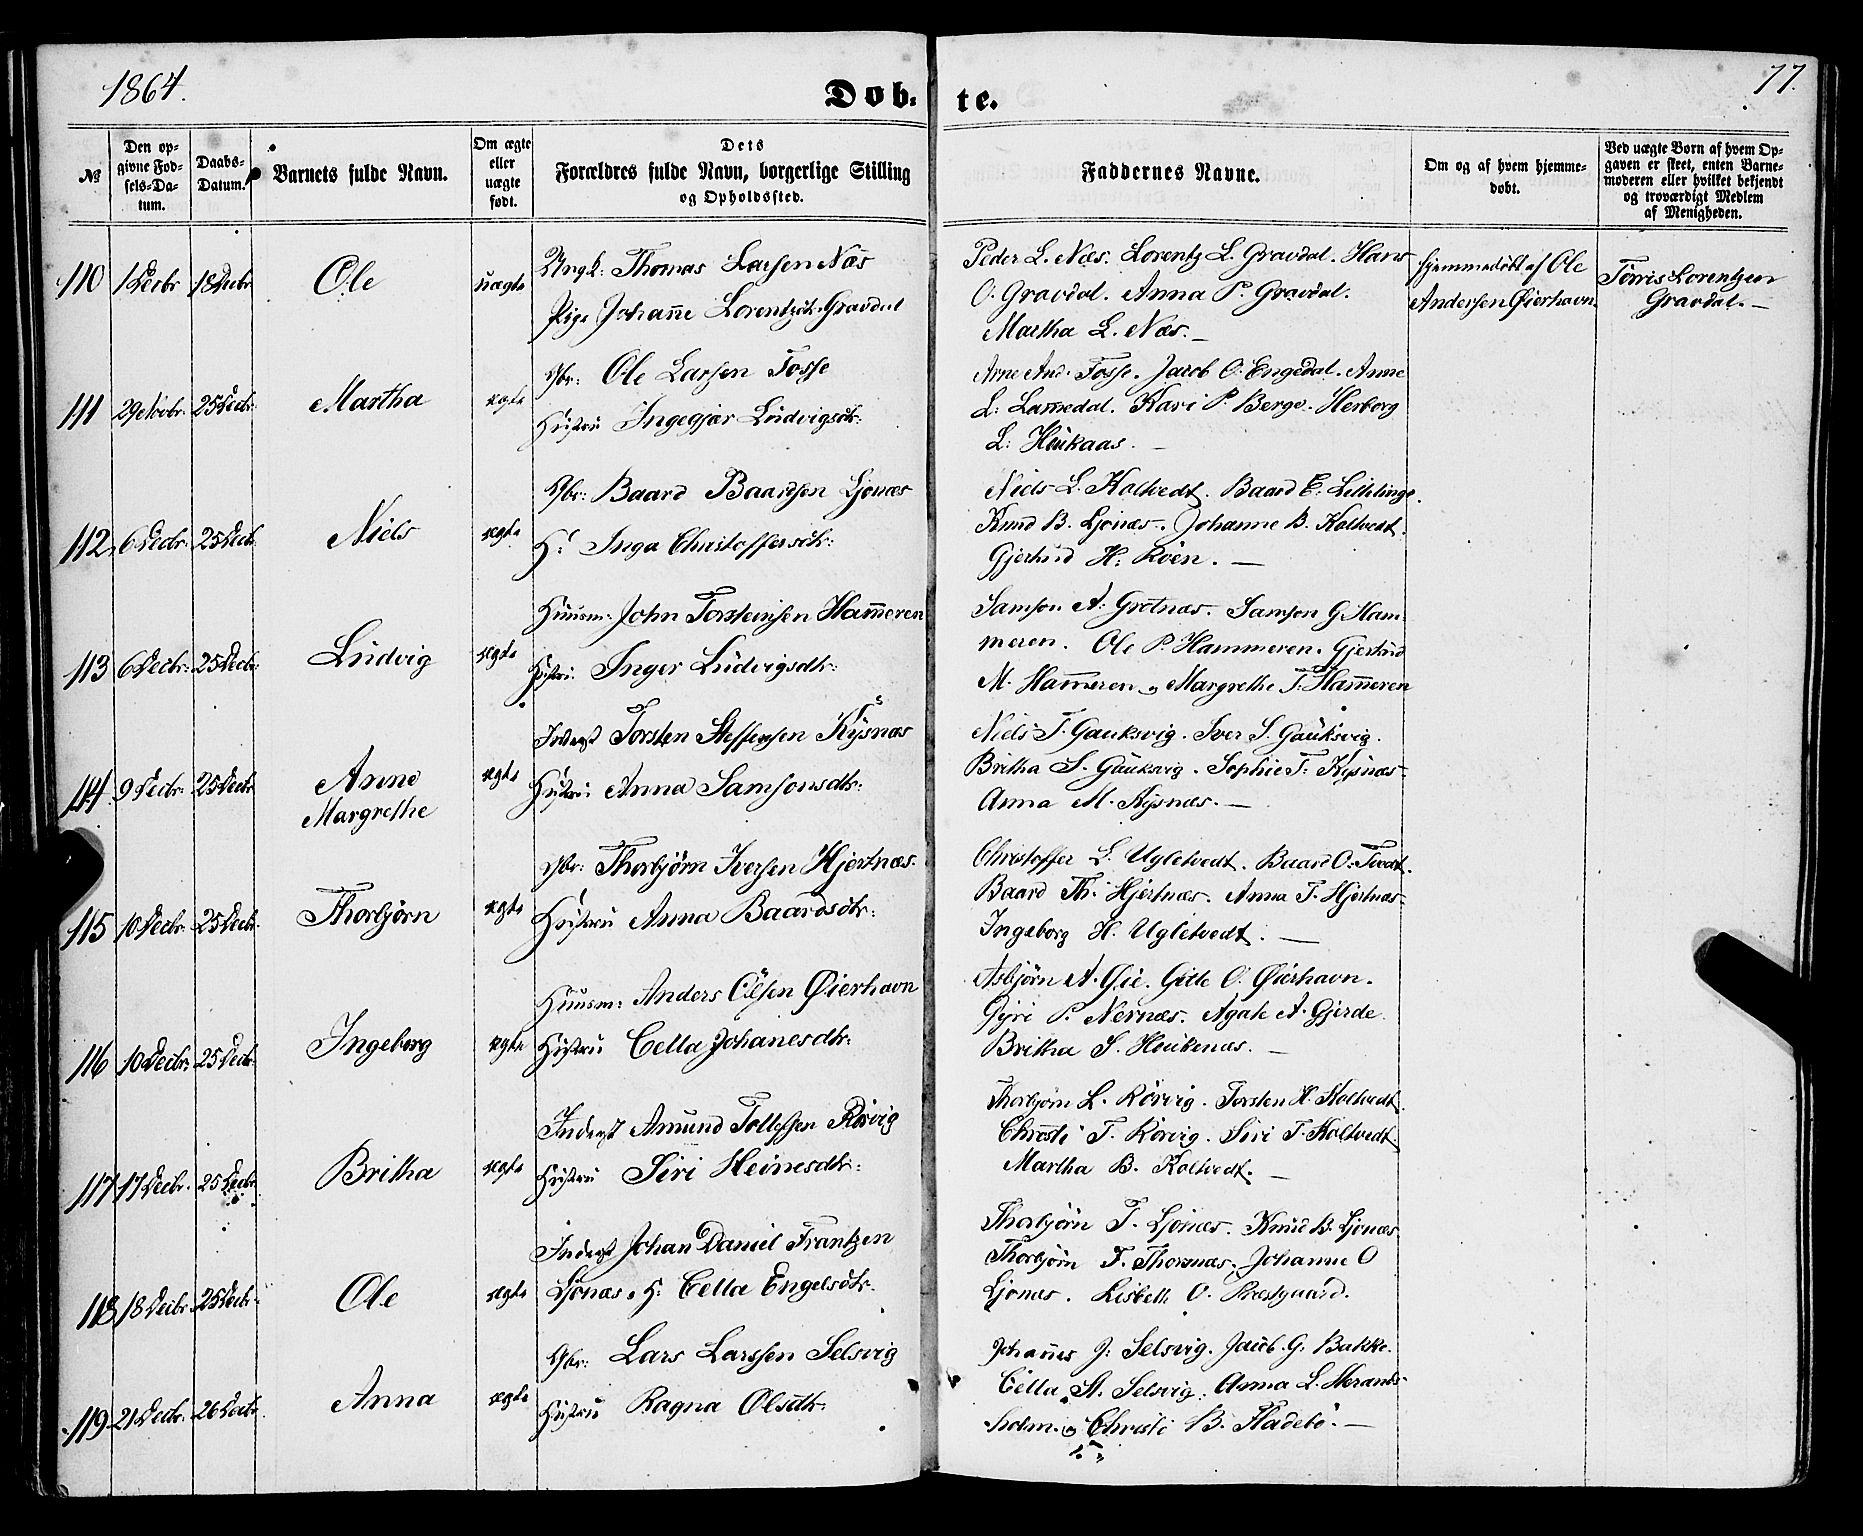 1864.
77.
Døb. te.
№
Den op-
givne Fød-
sels-Da-
tum.
Daabs-
Datum.
Barnets fulde Navn.
Om ægte
eller
uægte
født.
Dets
Forældres fulde Navn, borgerlige Stilling
og Opholdssted.
Faddernes Navne.
Om og af hvem hjemme-
døbt.
Ved uægte Børn af hvem Op-
gaven er skeet, enten Barne-
moderen eller hvilket bekjendt
og troværdigt Medlem
af Menigheden.
110 1 Decbr 18 Decbr Ole uægte
Ungk: Thomas Larsen Næs
Pige Johanne Lorentzdtr. Gravdal
Peder L. Næs. Lorentz L. Gravdal. Hans
O. Gravdal. Anna P. Gravdal.
Martha L. Næs. —
hjemmedøbt af Ole
Andersen Øierhavn.
Tørris Lorentzen
Gravdal. —
111 29 Novbr. 25 Decbr. Martha ægte
Gbr: Ole Larsen Fosse
Hustru Ingegjær Ludvigsdtr:
Arne And. Fosse. Jacob O. Engedal. Anne
L: Lammedal. Kari P. Berge. Herborg
L: Heukaas. —
112. 6 Decbr: 25 Decb. Niels ægte
Gbr: Baard Baardsen Ljonæs
H: Inga Christoffersdtr:
Niels L. Holtvedt. Baard E. Lillelinge.
Knud B. Ljonæs. Johanne B. Koltvedt.
Gjertrud H: Roen. —
113 6 Decbr: 25 Decbr: Ludvig ægte
Huusm: John Torsteinsen Hammeren
Hustru: Inger Ludvigsdtr:
Samson A. Grotnæs. Samson G. Ham-
meren. Ole P. Hammeren. Gjertrud
M. Hammeren og Margrethe T. Hammeren
114. 9 Decbr: 25 Decbr Anne
Margrethe
ægte
Inderst Torsten Steffensen Kysnæs
Hustru: Anna Samsonsdtr:
Niels T. Gauksvig. Iver S. Gauksvig.
Britha S. Gauksvig. Sophie T. Kysnæs-
Anna M. Kysnæs. —
115 10 Decbr. 25 Decbr. Thorbjørn ægte
Gbr: Thorbjørn Iversen Hjertnæs.
Hustru Anna Baardsdtr:
Christoffer L. Ugletvedt. Baard O. Tvedt.
Baard Th. Hjertnæs. Anna T. Hjertnæs-
Ingeborg H. Ugletvedt. —
116 10 Decbr: 25 Decbr. Ingeborg ægte
Huusm: Anders Olsen Øierhavn
Hustru Cella Johanesdtr:
Asbjørn A. Øie. Gitle O. Øierhavn.
Gyri P. Nernæs. Agate A. Gjerde.
Britha S. Heukenæs. —
117 17 Decbr. 25 Decbr. Britha ægte
Inderst Amund Tollefsen Rørvig
Hustru Siri Heinesdtr:
Thorbjørn L. Rørvig. Torsten H. Holtvedt.
Christi T. Rørvig. Siri T. Koltvedt.
Martha B. Koltvedt. —
118 18 Decbr 25 Decbr. Ole ægte
Inderst Johan Daniel Frantzen
Ljonæs. H: Cella Engelsdtr.
Thorbjørn T. Ljonæs. Knud B. Ljonæs
Thorbjørn T. Thorsnæs. Johanne O
Ljonæs. Lisbeth O. Præstgaard.
119 21 Decbr: 26 Decbr. Anna ægte
Gbr: Lars Larssen Selsvig
Hustru Ragna Olsdtr:
Johannes J: Selsvig. Jacob G. Bakke.
Cella A. Selsvig. Anna L. Herands-
holm. og Christi B. Fladebø. —